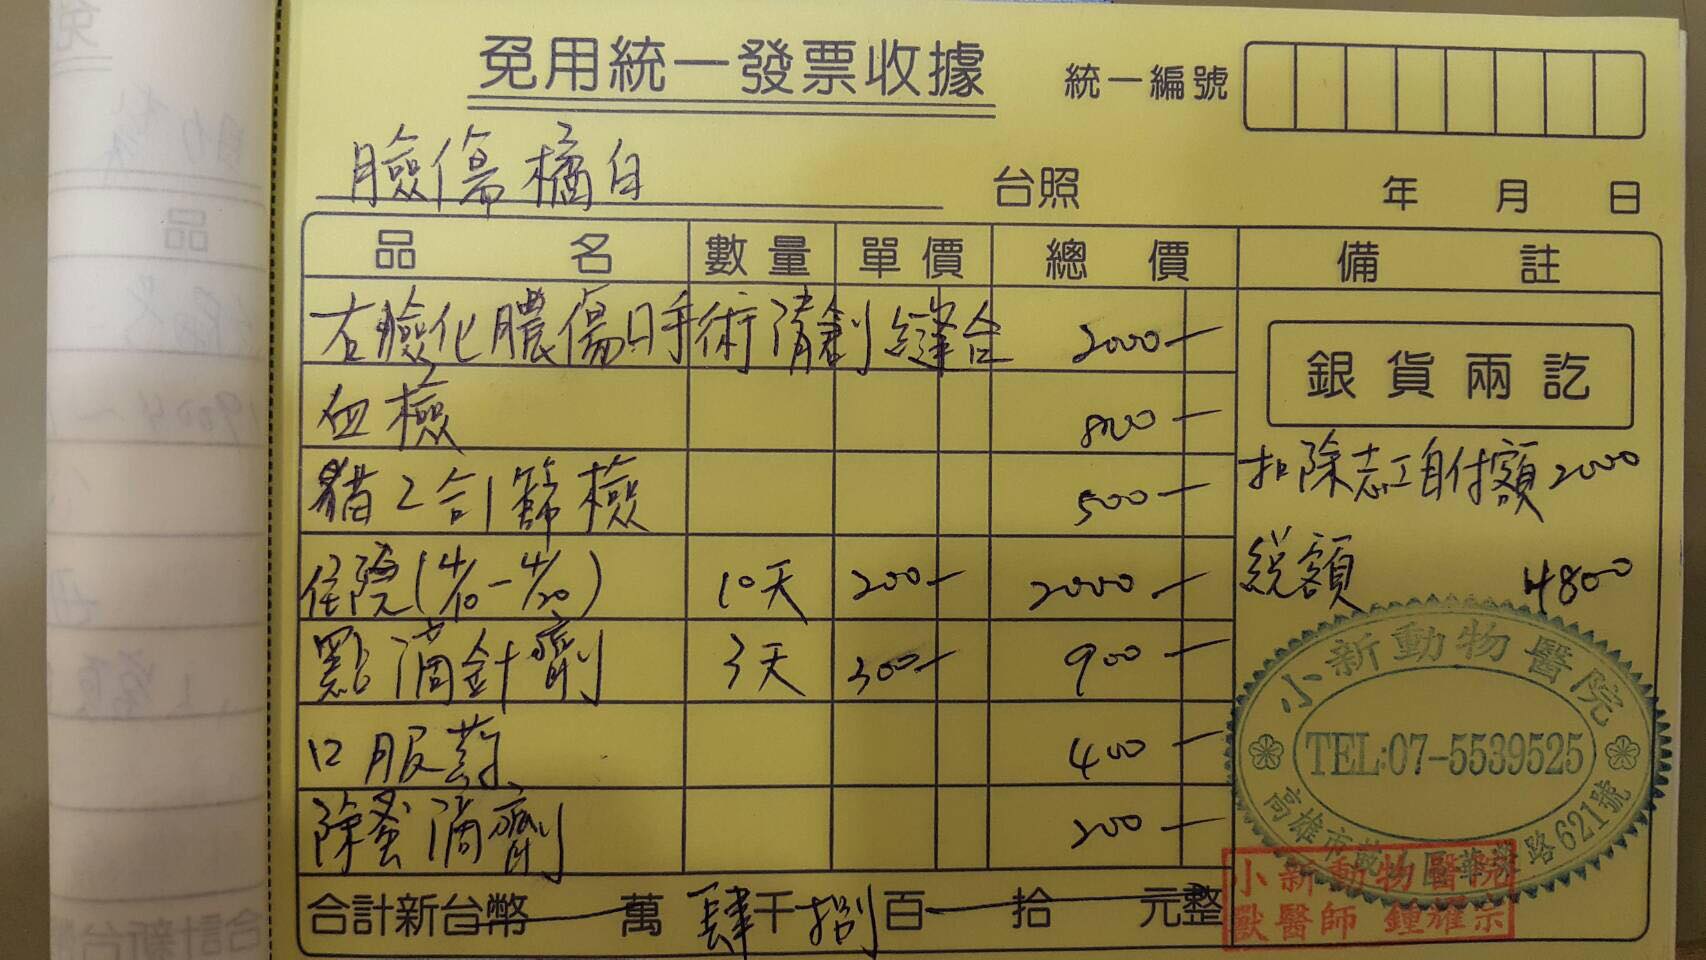 免用統一發票收據
統一編號
臉傷橘白 台照 年 月 日
品名 數量 單價 總價 備註
右臉化膿傷口手術清創縫合 2000-
血檢 800-
貓2合1篩檢 500-
住院(4/10-4/20) 10天 200- 2000-
點滴針劑 3天 300- 900-
口服藥 400-
除蚤滴劑 200-
合計新台幣 萬 肆千捌百 拾 元整
銀貨兩訖
扣除志工自付額2000
總額 4800
小新動物醫院
TEL:07-5539525
高雄市鼓山區華榮路621號
小新動物醫院
獸醫師 鍾耀宗
品
合計新台